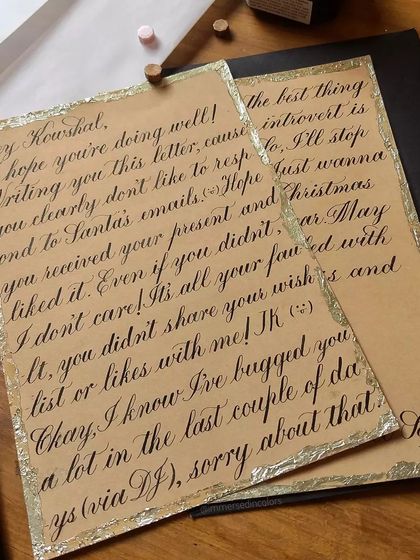 ey Kowshal,
hope you're doing well!
Writing you this letter, cause
you clearly don't like to resp
ond to Santa's emails.(:-) Hope
you received your present and
liked it. Even if you didn't,
I don't care! It's all your fau
lt, you didn't share your wish
list or likes with me! JK (:-)
Okay, I know I've bugged you
a lot in the last couple of da
ys (via DJ), sorry about that.
the best thing
introvert is
lo, I'll stop
Just wanna
Christmas
ear. May
ed with
s and
@immersedincolors